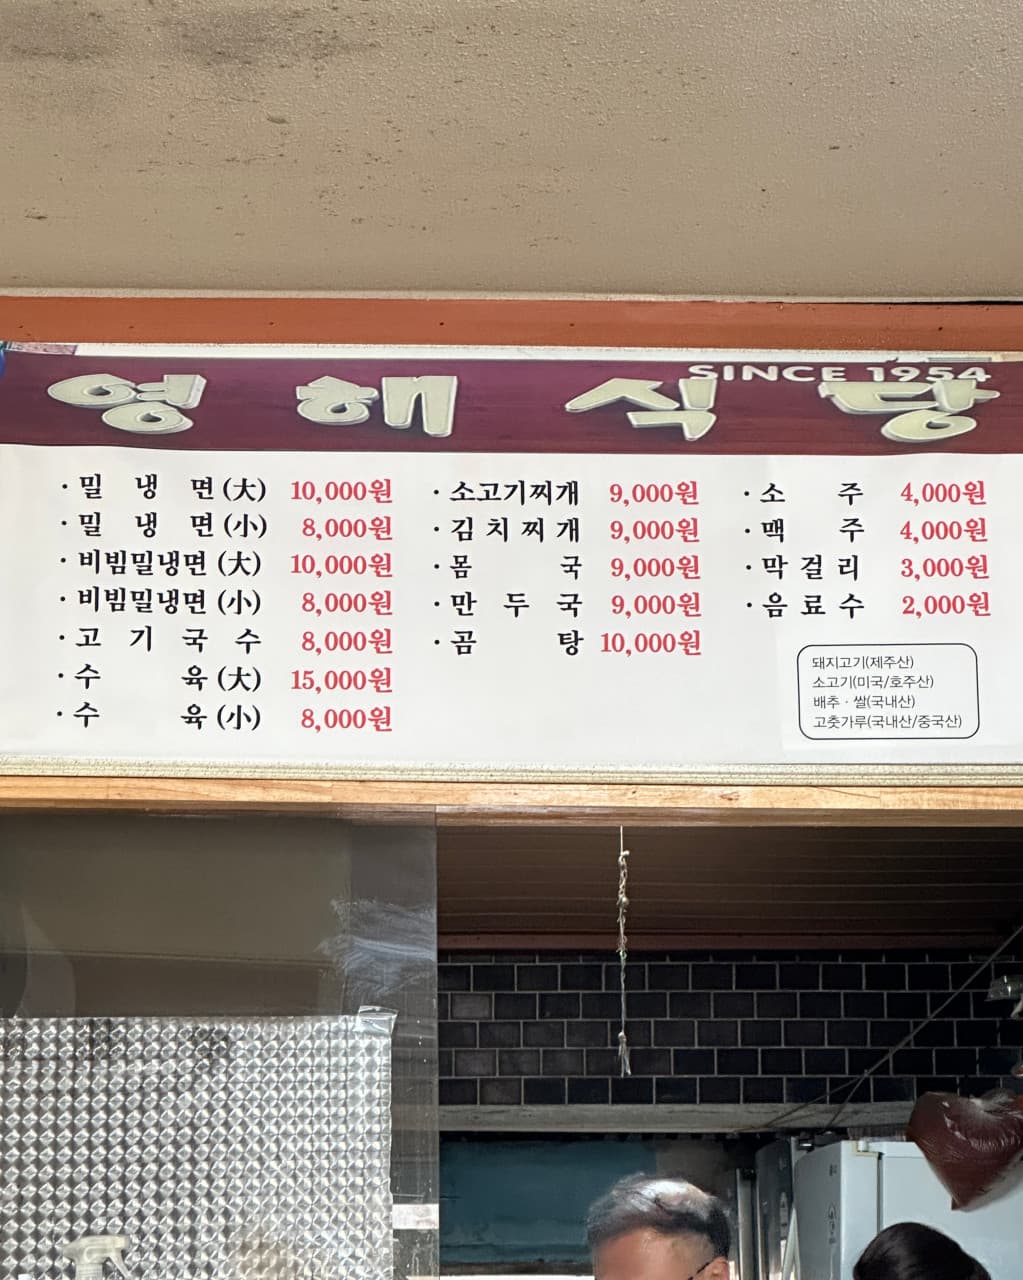 영해식당
SINCE 1954
· 밀냉면(大) 10,000원
· 밀냉면(小) 8,000원
· 비빔밀냉면(大) 10,000원
· 비빔밀냉면(小) 8,000원
· 고기국수 8,000원
· 수육(大) 15,000원
· 수육(小) 8,000원
· 소고기찌개 9,000원
· 김치찌개 9,000원
· 몸국 9,000원
· 만두국 9,000원
· 곰탕 10,000원
· 소주 4,000원
· 맥주 4,000원
· 막걸리 3,000원
· 음료수 2,000원
돼지고기(제주산)
소고기(미국/호주산)
배추 · 쌀(국내산)
고춧가루(국내산/중국산)